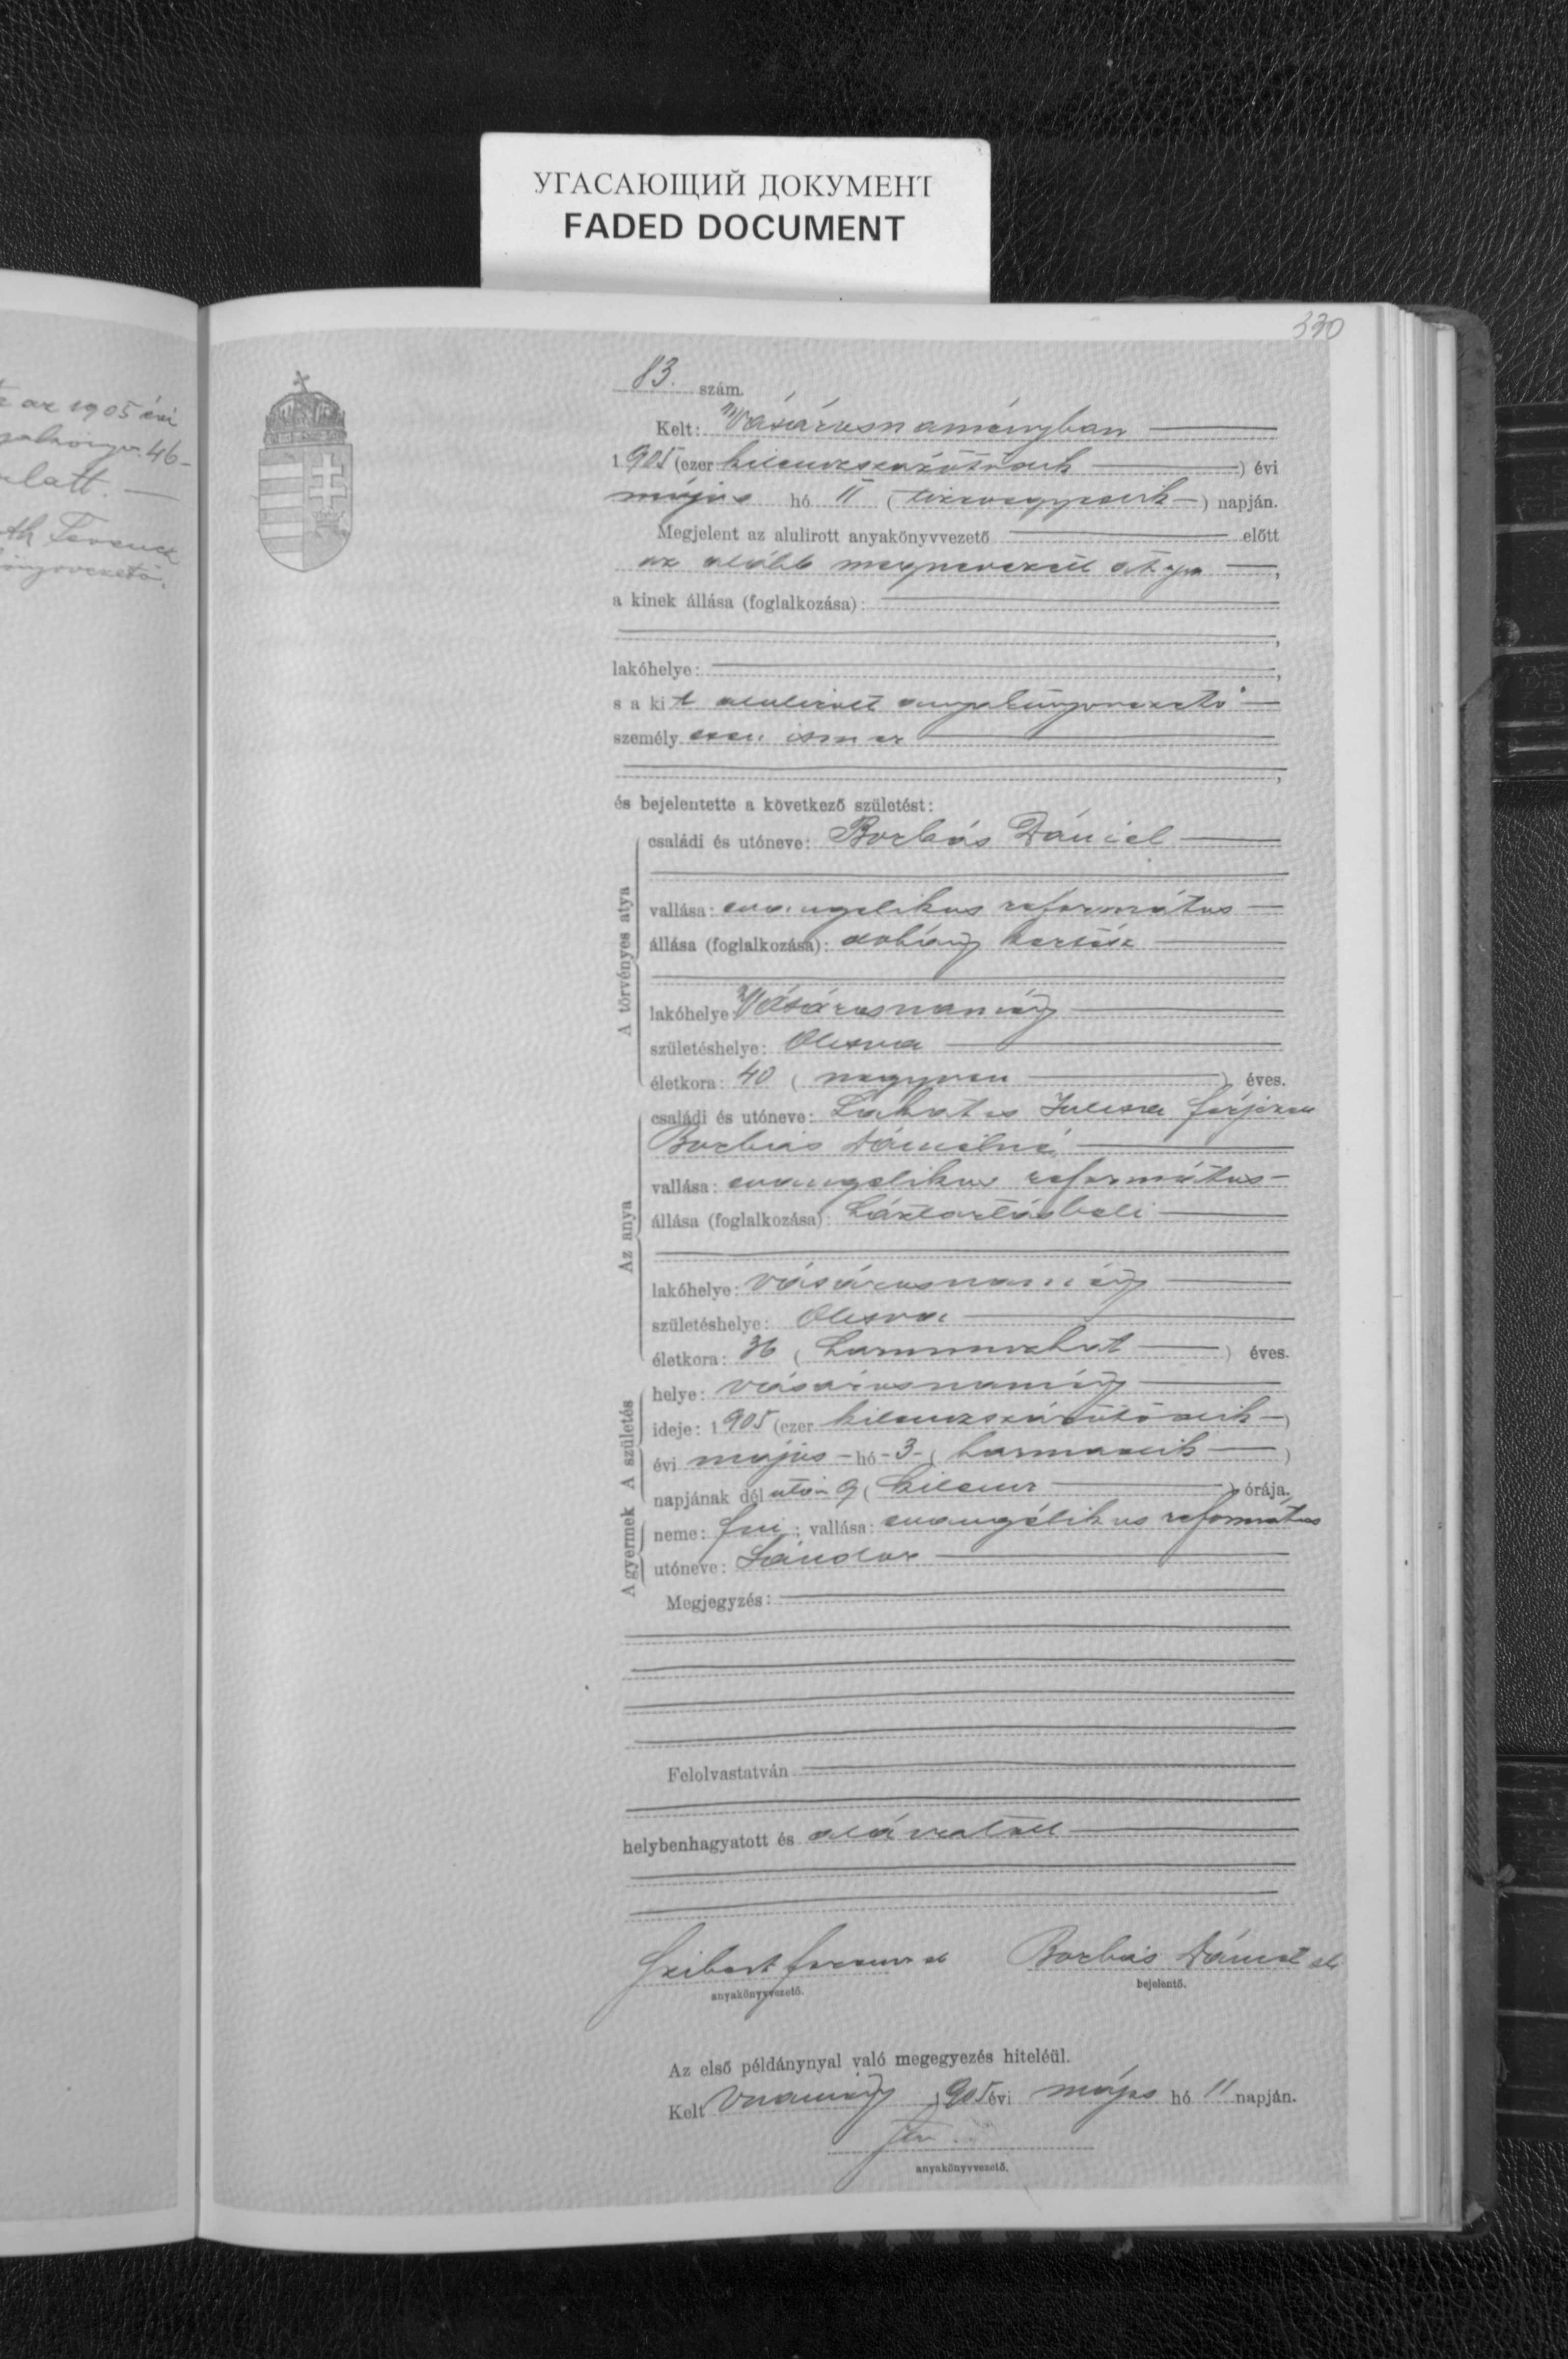 УГАСАЮЩИЙ ДОКУМЕНТ
FADED DOCUMENT
330
az 1905 évi
46-
alatt.
Ferencz
83. szám.
Kelt: Vásárosnaményban
1905 (ezer kilenczszázötödik) évi
május hó 11 (tizenegyedik) napján.
Megjelent az alulirott anyakönyvvezető előtt
az alább megnevezett atya,
a kinek állása (foglalkozása):
lakóhelye:
s a kit alulirott anyakönyvvezető
személyesen ismer
és bejelentette a következő születést:
A törvényes atya
családi és utóneve: Borbás Dániel
vallása: evangelikus református
állása (foglalkozása): dohány kertész
lakóhelye: Vásárosnamény
születéshelye: Olcsva
életkora: 40 (negyven) éves.
Az anya
családi és utóneve: Lakatos Julcsa férjezett
Borbás Dánielné
vallása: evangelikus református
állása (foglalkozása): háztartásbeli
lakóhelye: Vásárosnamény
születéshelye: Olcsva
életkora: 36 (harminczhat) éves.
A születés
helye: Vásárosnamény
ideje: 1905 (ezer kilenczszázötödik)
évi május hó 3 (harmadik)
napjának délután 9 (kilencz) órája.
A gyermek
neme: fiu; vallása: evangélikus református
utóneve: Sándor
Megjegyzés:
Felolvastatván
helybenhagyatott és aláiratott
Ferencz sk
Borbás Dániel sk
anyakönyvvezető.
bejelentő.
Az első példánynyal való megegyezés hiteléül.
Kelt Vnamény 1905 évi május hó 11 napján.
anyakönyvvezető.